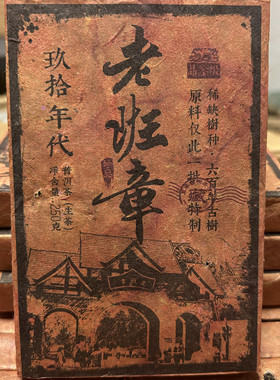 稀缺樹种·六百年古樹
原料仅此一批 特制
老班章
玖拾年代
普洱茶(生茶)
净含量:250克